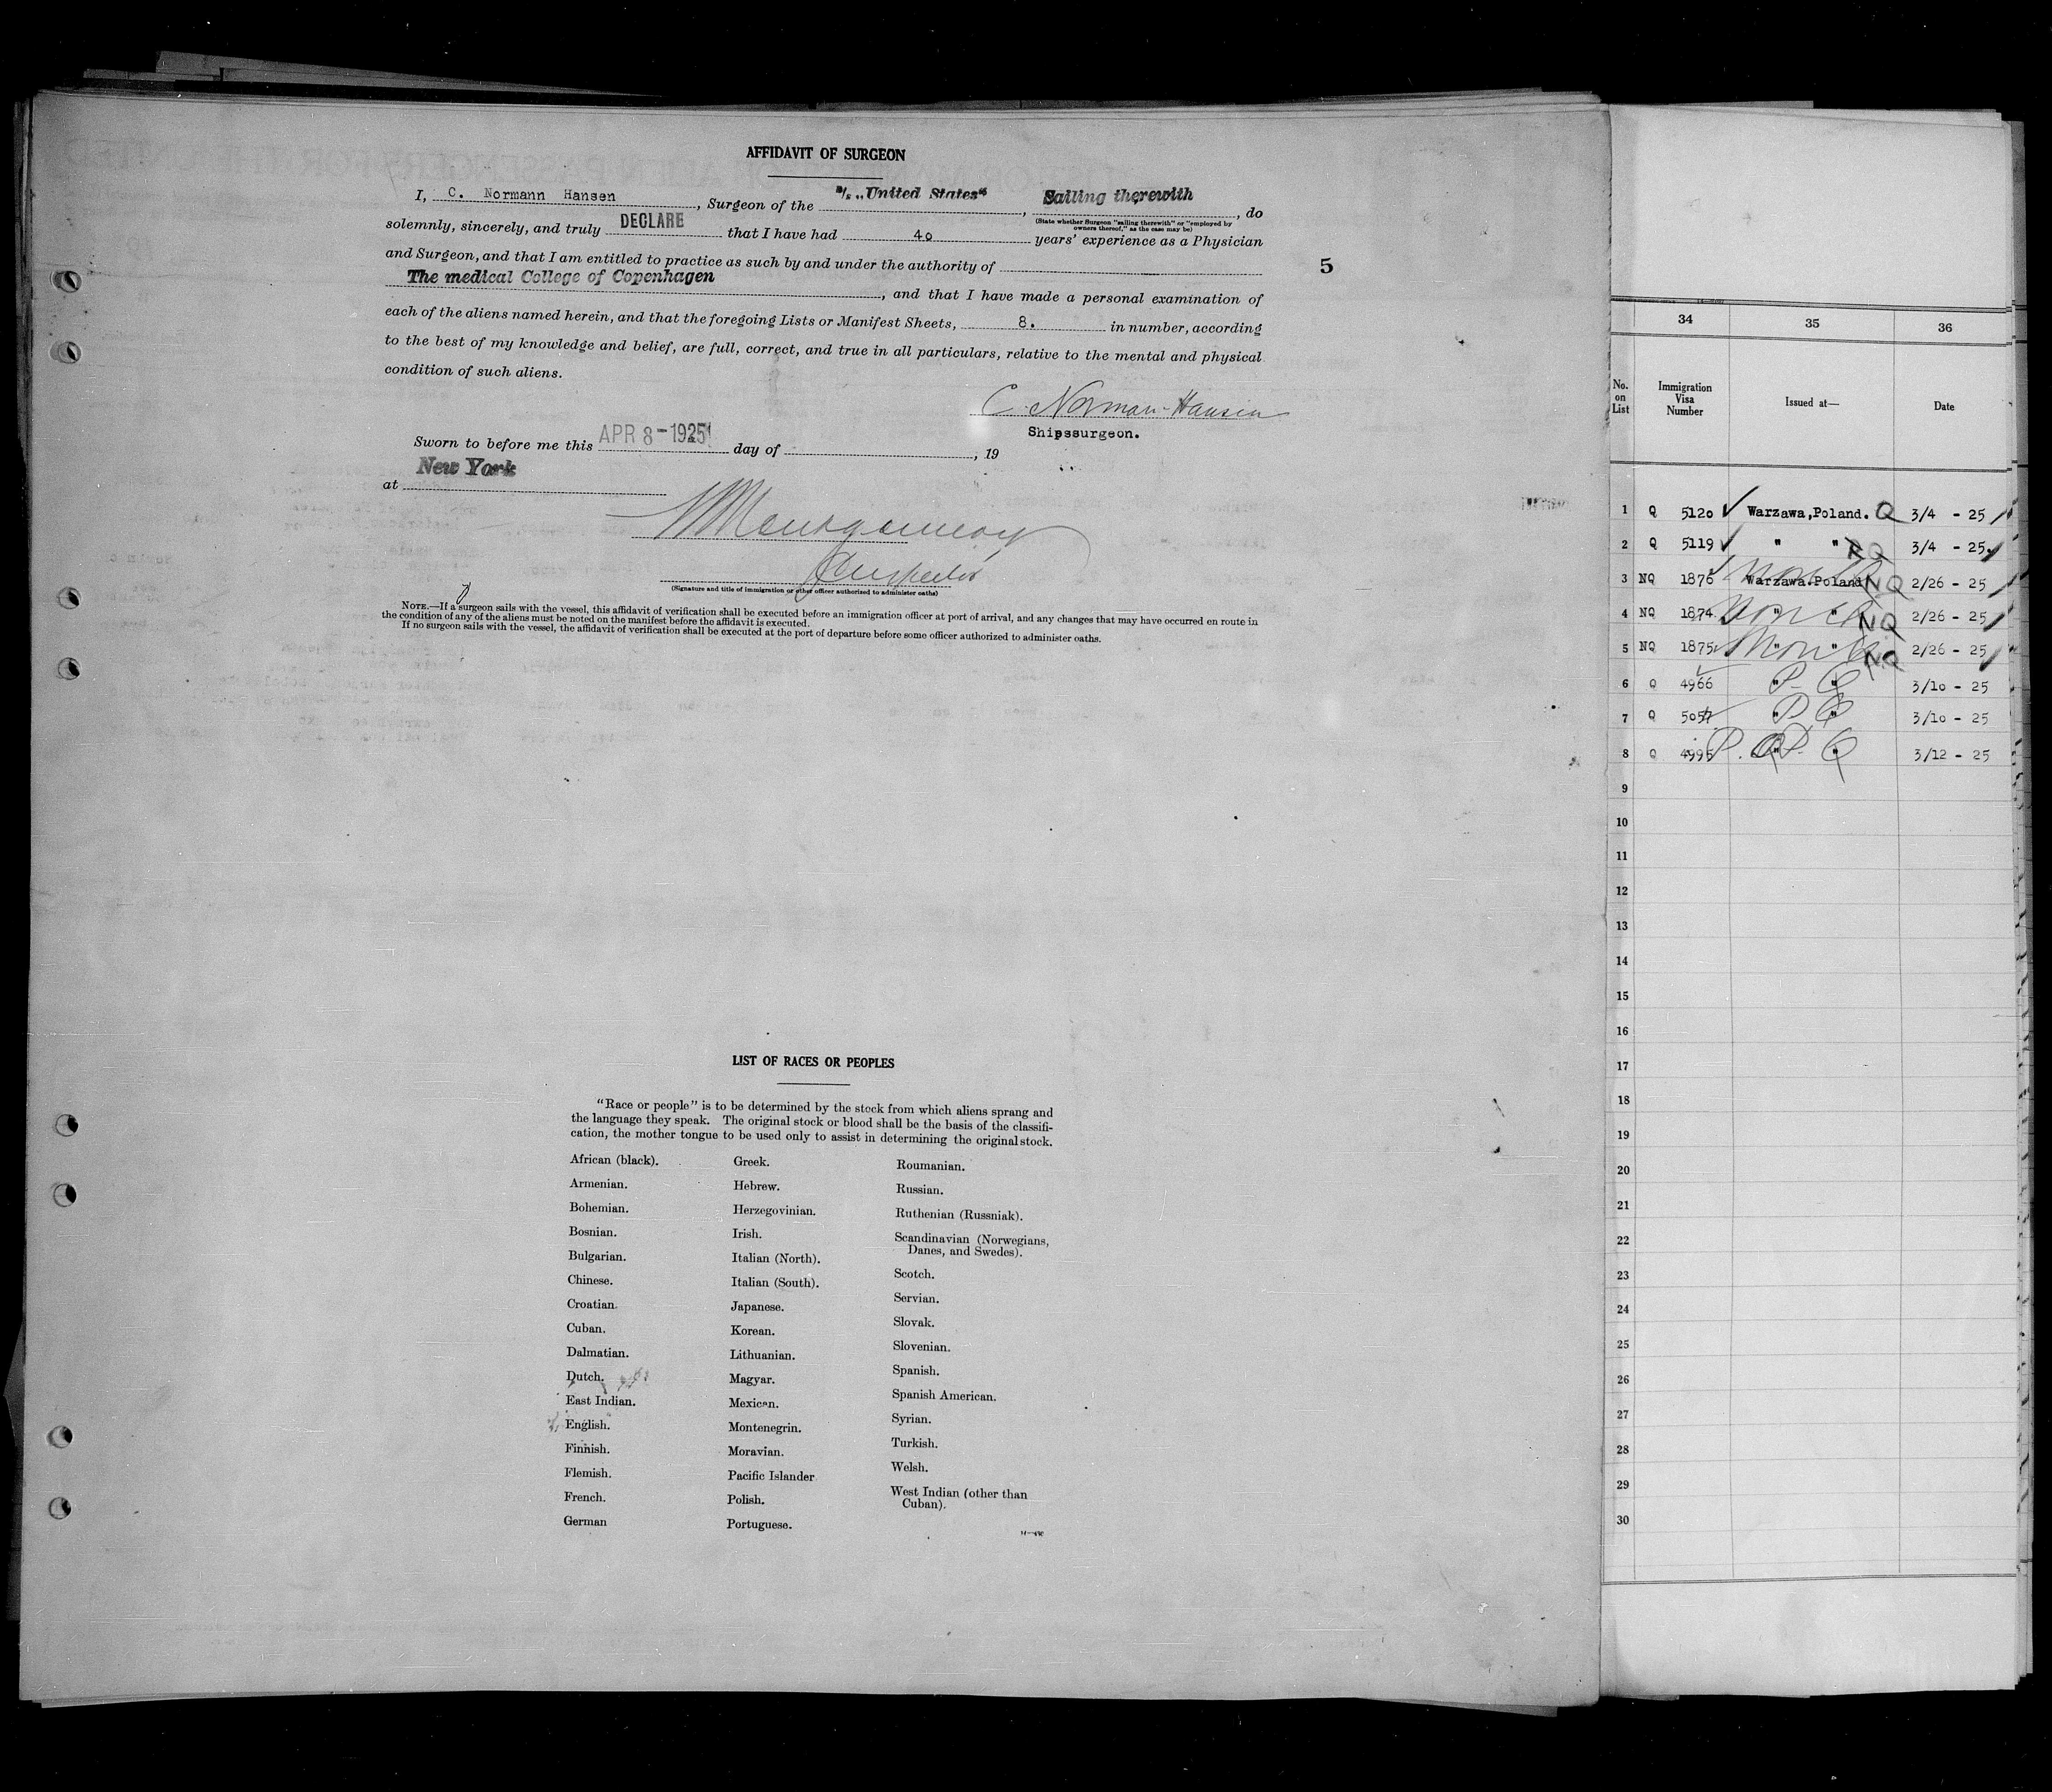 AFFIDAVIT OF SURGEON
I, C. Normann Hansen, Surgeon of the S/S „United States“, Sailing therewith, do
(State whether Surgeon "sailing therewith" or "employed by
owners thereof," as the case may be)
solemnly, sincerely, and truly DECLARE that I have had 40 years' experience as a Physician
and Surgeon, and that I am entitled to practice as such by and under the authority of
The medical College of Copenhagen, and that I have made a personal examination of
each of the aliens named herein, and that the foregoing Lists or Manifest Sheets, 8. in number, according
to the best of my knowledge and belief, are full, correct, and true in all particulars, relative to the mental and physical
condition of such aliens.
C. Norman-Hansen
Shipssurgeon.
Sworn to before me this APR 8-1925 day of , 19
at New York
Montgomery
Inspector
(Signature and title of immigration or other officer authorized to administer oaths)
NOTE.—If a surgeon sails with the vessel, this affidavit of verification shall be executed before an immigration officer at port of arrival, and any changes that may have occurred en route in
the condition of any of the aliens must be noted on the manifest before the affidavit is executed.
If no surgeon sails with the vessel, the affidavit of verification shall be executed at the port of departure before some officer authorized to administer oaths.
5
LIST OF RACES OR PEOPLES
"Race or people" is to be determined by the stock from which aliens sprang and
the language they speak. The original stock or blood shall be the basis of the classifi-
cation, the mother tongue to be used only to assist in determining the original stock.
African (black).
Armenian.
Bohemian.
Bosnian.
Bulgarian.
Chinese.
Croatian.
Cuban.
Dalmatian.
Dutch.
East Indian.
English.
Finnish.
Flemish.
French.
German
Greek.
Hebrew.
Herzegovinian.
Irish.
Italian (North).
Italian (South).
Japanese.
Korean.
Lithuanian.
Magyar.
Mexican.
Montenegrin.
Moravian.
Pacific Islander
Polish.
Portuguese.
Roumanian.
Russian.
Ruthenian (Russniak).
Scandinavian (Norwegians,
Danes, and Swedes).
Scotch.
Servian.
Slovak.
Slovenian.
Spanish.
Spanish American.
Syrian.
Turkish.
Welsh.
West Indian (other than
Cuban).
34 35 36
No. on List Immigration Visa Number Issued at— Date
1 Q 5120 Warzawa,Poland. Q 3/4 - 25
2 Q 5119 " " Q 3/4 - 25
3 NQ 1876 Warzawa.Poland NQ 2/26 - 25
4 NQ 1874 " " NQ 2/26 - 25
5 NQ 1875 " " NQ 2/26 - 25
6 Q 4966 " P " Q 3/10 - 25
7 Q 5057 " P " Q 3/10 - 25
8 Q 4995 " P " Q 3/12 - 25
9
10
11
12
13
14
15
16
17
18
19
20
21
22
23
24
25
26
27
28
29
30